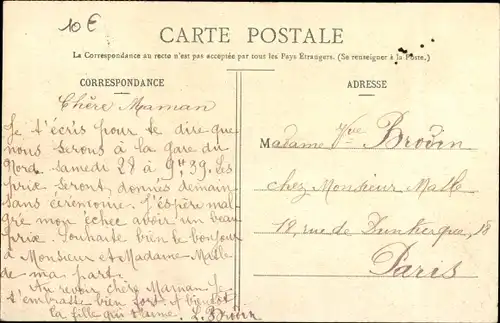 10 €
CARTE POSTALE
La Correspondance au recto n'est pas acceptée par tout les Pays Étrangers. (Se renseigner à la Poste.)
CORRESPONDANCE
Chère Maman
Je t'écris pour te dire que
nous serons à la gare du
Nord samedi 28 à 9H,39. Les
prix seront donnés demain
sans cérémonie. J'espère mal-
gré mon échec avoir un beau
prix. Souhaite bien le bonjour
à Monsieur et Madame
de ma part.
Au revoir chère Maman Je
t'embrasse bien fort. A bientôt
la fille qui t'aime. L. Brouin
ADRESSE
Madame Vve Brouin
chez Monsieur
18, rue de Dunkerque, 18
Paris